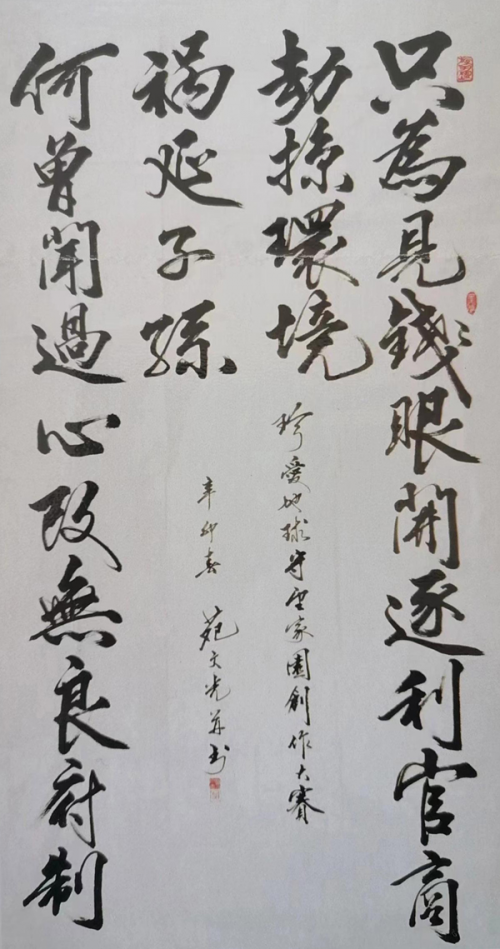 只為見錢眼開逐利官商
劫掠環境
何曾聞過心改無良府制
祸延子孫
珍愛地球守望家園創作大賽
辛卯春 苑文光并书